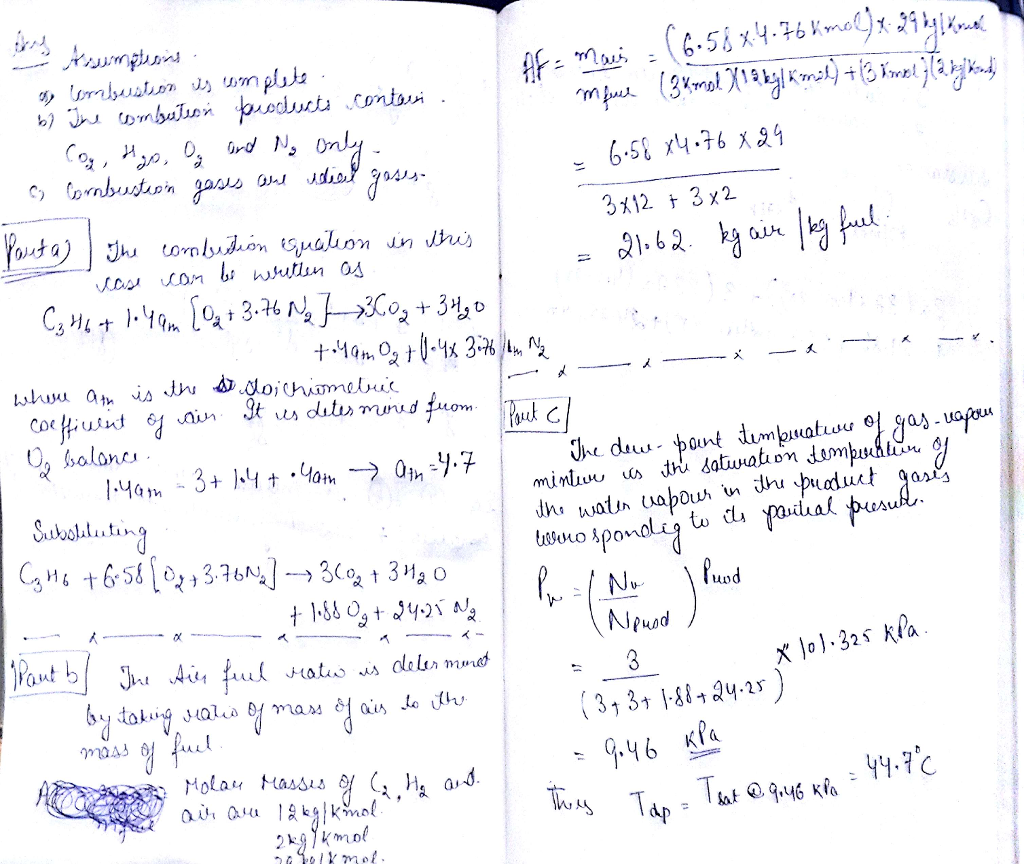 Ans Assumptions.
a) Combustion is complete.
b) The combution products contain.
CO2, H2O, O2 and N2 only.
c) Combustion gases are ideal gases.
Part a) The combustion equation in this
case can be written as
C3H6 + 1.4am [O2 + 3.76 N2] → 3CO2 + 3H2O
+ .4am O2 + (1.4 x 3.76)am N2
where am is the stoichiometric
coefficient of air. It is determined from
O2 balance.
1.4am = 3 + 1.4 + .4am → ath = 4.7
Substituting
C3H6 + 6.58 [O2 + 3.76N2] → 3CO2 + 3H2O
+ 1.88 O2 + 24.25 N2
Part b) The Air fuel ratio is determined
by taking ratio of mass of air to the
mass of fuel.
Molar Masses of C2, H2 and.
air are 12 kg/kmol.
2kg/kmol
29 kg/kmol.
AF = mair / mfuel = (6.58 x 4.76 Kmol) x 29 kg/Kmol / (3Kmol)(12kg/Kmol) + (3 Kmol)(2kg/Kmol)
= 6.58 x 4.76 x 29 / 3x12 + 3x2
= 21.62. kg air / kg fuel.
Part C
The dew-point temperature of gas-vapour
mixture is the saturation temperature of
the water vapour in the product gases
corrosponding to its partial presure.
Pv = (Nv / Nprod) Prod
= 3 / (3+3+1.88+24.25) x 101.325 KPa.
= 9.46 KPa
Thus Tdp = Tsat @ 9.46 KPa = 44.7°C